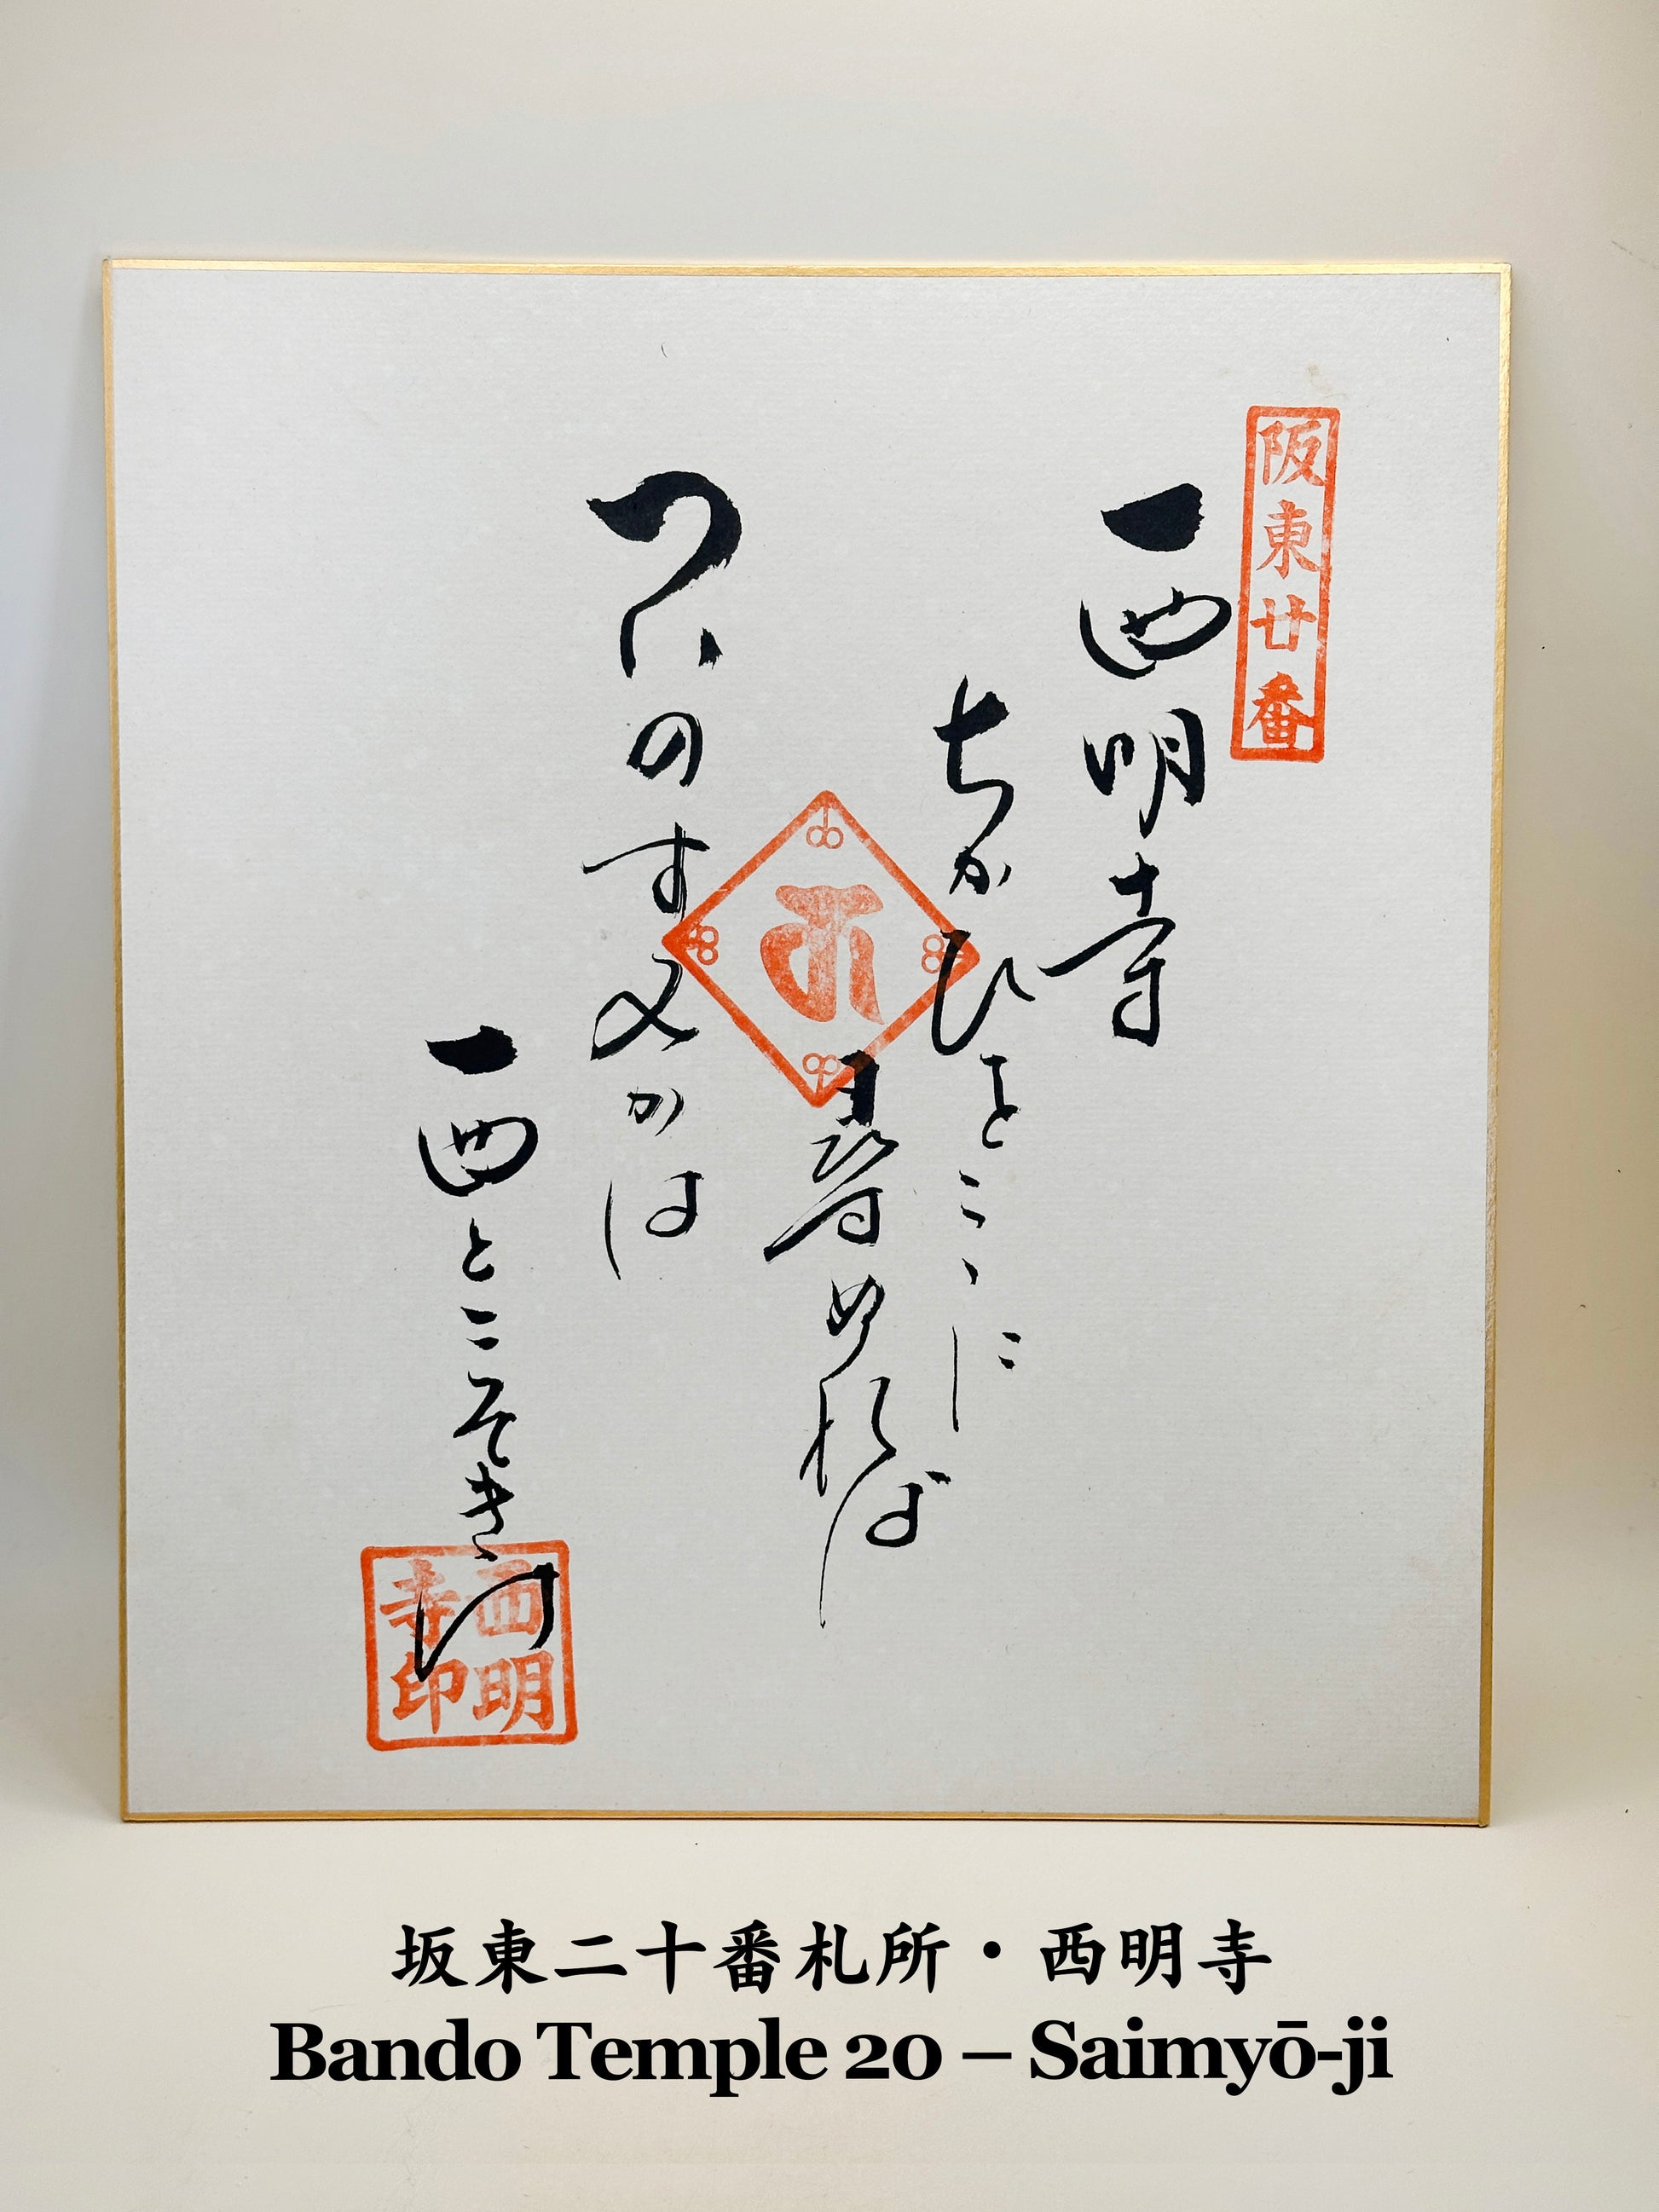 阪東廿番
西明寺
ちかひをこゝに
尋ぬれば
ついのすみかは
西とこそきけ
西明寺印
坂東二十番札所・西明寺
Bando Temple 20 – Saimyō-ji